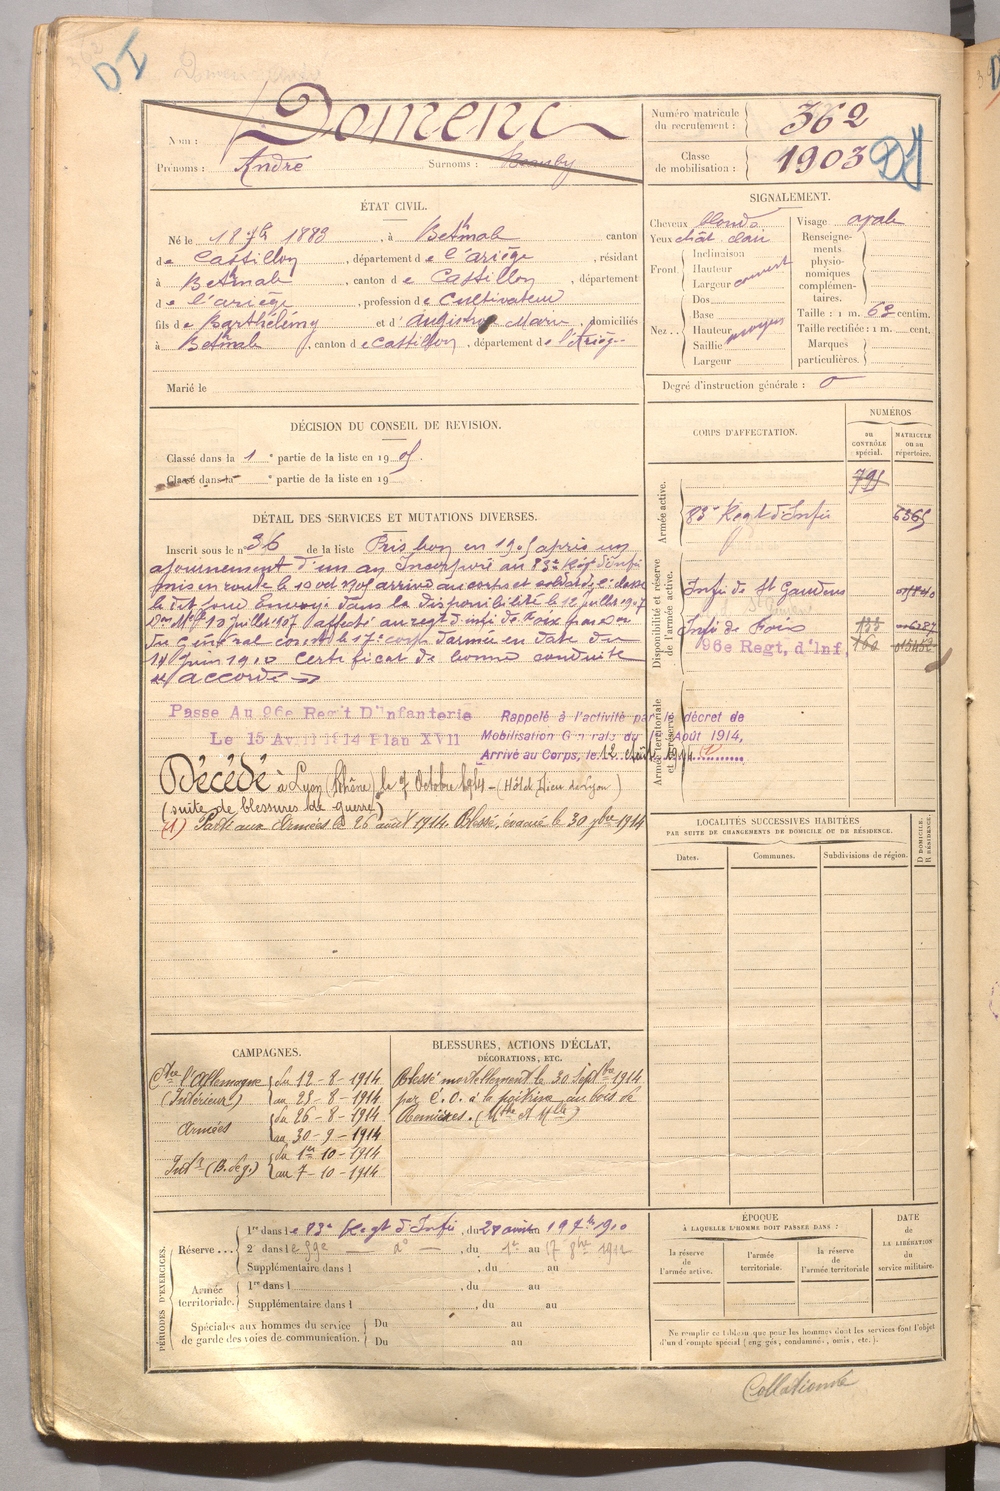 DI
Domenc
Nom :
Prénoms : André Surnoms :
Numéro matricule du recrutement : 362
Classe de mobilisation : 1903 DI
ÉTAT CIVIL.
Né le 18 7bre 1883, à Betmale canton
de Castillon, département de l'ariége, résidant
à Betmale, canton de Castillon, département
de l'ariége, profession de Cultivateur
fils de Barthélémy et d' Marie, domiciliés
à Betmale, canton de Castillon, département de l'Ariège
Marié le
SIGNALEMENT.
Cheveux blonds
Yeux chât. clair
Front Inclinaison
Hauteur
Largeur couvert
Nez Dos
Base
Hauteur moyen
Saillie
Largeur
Visage ovale
Renseignements physionomiques complémentaires.
Taille : 1 m. 62 centim.
Taille rectifiée : 1 m. cent.
Marques particulières.
Degré d'instruction générale : 0
DÉCISION DU CONSEIL DE REVISION.
Classé dans la 1e partie de la liste en 1905.
Classé dans la e partie de la liste en 19
CORPS D'AFFECTATION.
NUMÉROS
au CONTRÔLE spécial.
MATRICULE ou au répertoire.
Armée active.
795
83e Régt d'Infie 6365
Disponibilité et réserve de l'armée active.
Infie de St Gaudens
Infie de Foix 133
96e Regt, d'Inf. 160
Armée territoriale et sa réserve
DÉTAIL DES SERVICES ET MUTATIONS DIVERSES.
Inscrit sous le n° 36 de la liste Pris bon en 1905 après un
ajournement d'un an Incorporé au 83e Rég d'Infie
mis en route le 10 oct 1905 arrivé au corps et soldat de 2e classe
le dit jour Envoyé dans la disponibilité le 12 juillet 1907
10 juillet 1907 affecté au regt d'infie de Foix par
du Général com le 17e corps d'armée en date du
14 juin 1910 Certificat de bonne conduite
accordé
Passe Au 96e Regt D'Infanterie
Le 15 Avril 1914 Plan XVII
Rappelé à l'activité par le décret de
Mobilisation Générale du 1er Août 1914,
Arrivé au Corps, le 12 Août 1914 (1)
Décédé à Lyon (Rhône) le 7 Octobre 1914 - (Hôtel Dieu de Lyon)
(suite de blessures de guerre)
(1) Parti aux Armées le 26 août 1914. Blessé, évacué le 30 7bre 1914
LOCALITÉS SUCCESSIVES HABITÉES
PAR SUITE DE CHANGEMENTS DE DOMICILE OU DE RÉSIDENCE.
Dates.
Communes.
Subdivisions de région.
D DOMICILE.
R RÉSIDENCE.
CAMPAGNES.
Ctre l'Allemagne du 12-8-1914
(Intérieur) au 25-8-1914
Armées du 26-8-1914
au 30-9-1914
Intr (B. de g.) du 1er 10-1914
au 7-10-1914
BLESSURES, ACTIONS D'ÉCLAT,
DÉCORATIONS, ETC.
Blessé mortellement le 30 Septbre 1914
par E. O. à la poitrine au bois de
Bernières. (Mthe et Mlle)
PÉRIODES D'EXERCICES.
Réserve...
1re dans le 83e Regt d'Infie, du 28 au 19 1910
2e dans le 59e — do —, du 1er au 17 8bre 1912
Supplémentaire dans l , du au
Armée territoriale.
1re dans l , du au
Supplémentaire dans l , du au
Spéciales aux hommes du service de garde des voies de communication.
Du au
Du au
ÉPOQUE
À LAQUELLE L'HOMME DOIT PASSER DANS :
la réserve de l'armée active.
l'armée territoriale.
la réserve de l'armée territoriale
DATE de LA LIBÉRATION du service militaire.
Ne remplir ce tableau que pour les hommes dont les services font l'objet
d'un décompte spécial (engagés, condamnés, omis, etc.).
Collationné